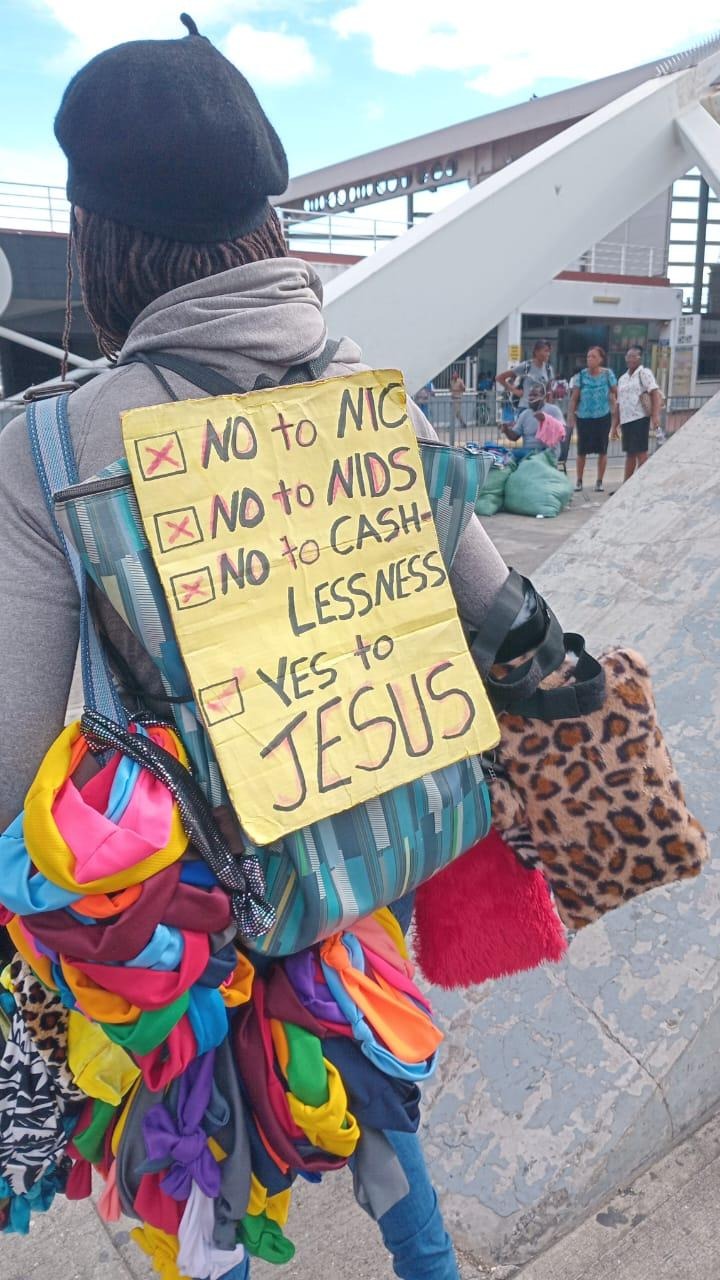 NO to NIC
NO to NIDS
NO to CASH-
LESSNESS
YES to
JESUS